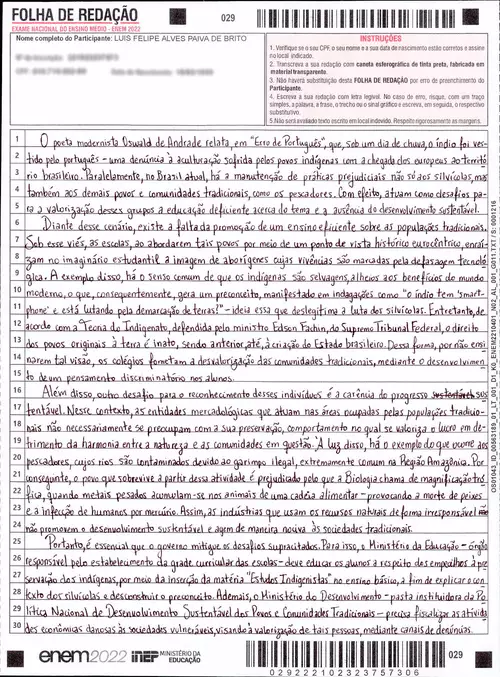 FOLHA DE REDAÇÃO
EXAME NACIONAL DO ENSINO MÉDIO - ENEM 2022
029
Nome completo do Participante: LUIS FELIPE ALVES PAIVA DE BRITO
INSTRUÇÕES
1. Verifique se o seu CPF, o seu nome e a sua data de nascimento estão corretos e assine no local indicado.
2. Transcreva a sua redação com caneta esferográfica de tinta preta, fabricada em material transparente.
3. Não haverá substituição desta FOLHA DE REDAÇÃO por erro de preenchimento do Participante.
4. Escreva a sua redação com letra legível. No caso de erro, risque, com um traço simples, a palavra, a frase, o trecho ou o sinal gráfico e escreva, em seguida, o respectivo substitutivo.
5. Não será avaliado texto escrito em local indevido. Respeite rigorosamente as margens.
1 O poeta modernista Oswald de Andrade relata, em "Erro de Português", que, sob um dia de chuva, o índio foi ves-
2 tido pelo português - uma denúncia à aculturação sofrida pelos povos indígenas com a chegada dos europeus ao territó-
3 rio brasileiro. Paralelamente, no Brasil atual, há a manutenção de práticas prejudiciais não só aos silvícolas, mas
4 também aos demais povos e comunidades tradicionais, como os pescadores. Com efeito, atuam como desafios pa-
5 ra a valorização desses grupos a educação deficiente acerca do tema e a ausência do desenvolvimento sustentável.
6 Diante desse cenário, existe a falta da promoção de um ensino eficiente sobre as populações tradicionais.
7 Sob esse viés, as escolas, ao abordarem tais povos por meio de um ponto de vista histórico eurocêntrico, enraí-
8 zam no imaginário estudantil a imagem de aborígenes cujas vivências são marcadas pela defasagem tecnoló-
9 gica. A exemplo disso, há o senso comum de que os indígenas são selvagens, alheios aos benefícios do mundo
10 moderno, o que, consequentemente, gera um preconceito, manifestado em indagações como "o índio tem 'smart-
11 phone' e está lutando pela demarcação de terras?" - ideia essa que deslegitima a luta dos silvícolas. Entretanto, de
12 acordo com a Teoria do Indigenato, defendida pelo ministro Edson Fachin, do Supremo Tribunal Federal, o direito
13 dos povos originais à terra é inato, sendo anterior, até, à criação do Estado brasileiro. Dessa forma, por não ensi-
14 narem tal visão, os colégios fometam a desvalorização das comunidades tradicionais, mediante o desenvolvimen-
15 to de um pensamento discriminatório nos alunos.
16 Além disso, outro desafio para o reconhecimento desses indivíduos é a carência do progresso sustentável sus-
17 tentável. Nesse contexto, as entidades mercadológicas que atuam nas áreas ocupadas pelas populações tradicio-
18 nais não necessariamente se preocupam com a sua preservação, comportamento no qual se valoriza o lucro em de-
19 trimento da harmonia entre a natureza e as comunidades em questão. À luz disso, há o exemplo do que ocorre aos
20 pescadores, cujos rios são contaminados devido ao garimpo ilegal, extremamente comum na Região Amazônica. Por
21 conseguinte, o povo que sobrevive a partir dessa atividade é prejudicado pelo que a Biologia chama de magnificação tró-
22 fica, quando metais pesados acumulam-se nos animais de uma cadeia alimentar - provocando a morte de peixes
23 e a infecção de humanos por mercúrio. Assim, as indústrias que usam os recursos naturais de forma irresponsável não
24 não promovem o desenvolvimento sustentável e agem de maneira nociva às sociedades tradicionais.
25 Portanto, é essencial que o governo mitigue os desafios supracitados. Para isso, o Ministério da Educação - órgão
26 responsável pelo estabelecimento da grade curricular das escolas - deve educar os alunos a respeito dos empecilhos à pre-
27 servação dos indígenas, por meio da inserção da matéria "Estudos Indigenistas" no ensino básico, a fim de explicar o con-
28 texto dos silvícolas e desconstruir o preconceito. Ademais, o Ministério do Desenvolvimento - pasta instituidora da Po-
29 lítica Nacional de Desenvolvimento Sustentável dos Povos e Comunidades Tradicionais - precisa fiscalizar as ativida-
30 des econômicas danosas às sociedades vulneráveis, visando à valorização de tais pessoas, mediante canais de denúncias.
enem2022 INEP MINISTÉRIO DA EDUCAÇÃO
029
029222102323757306